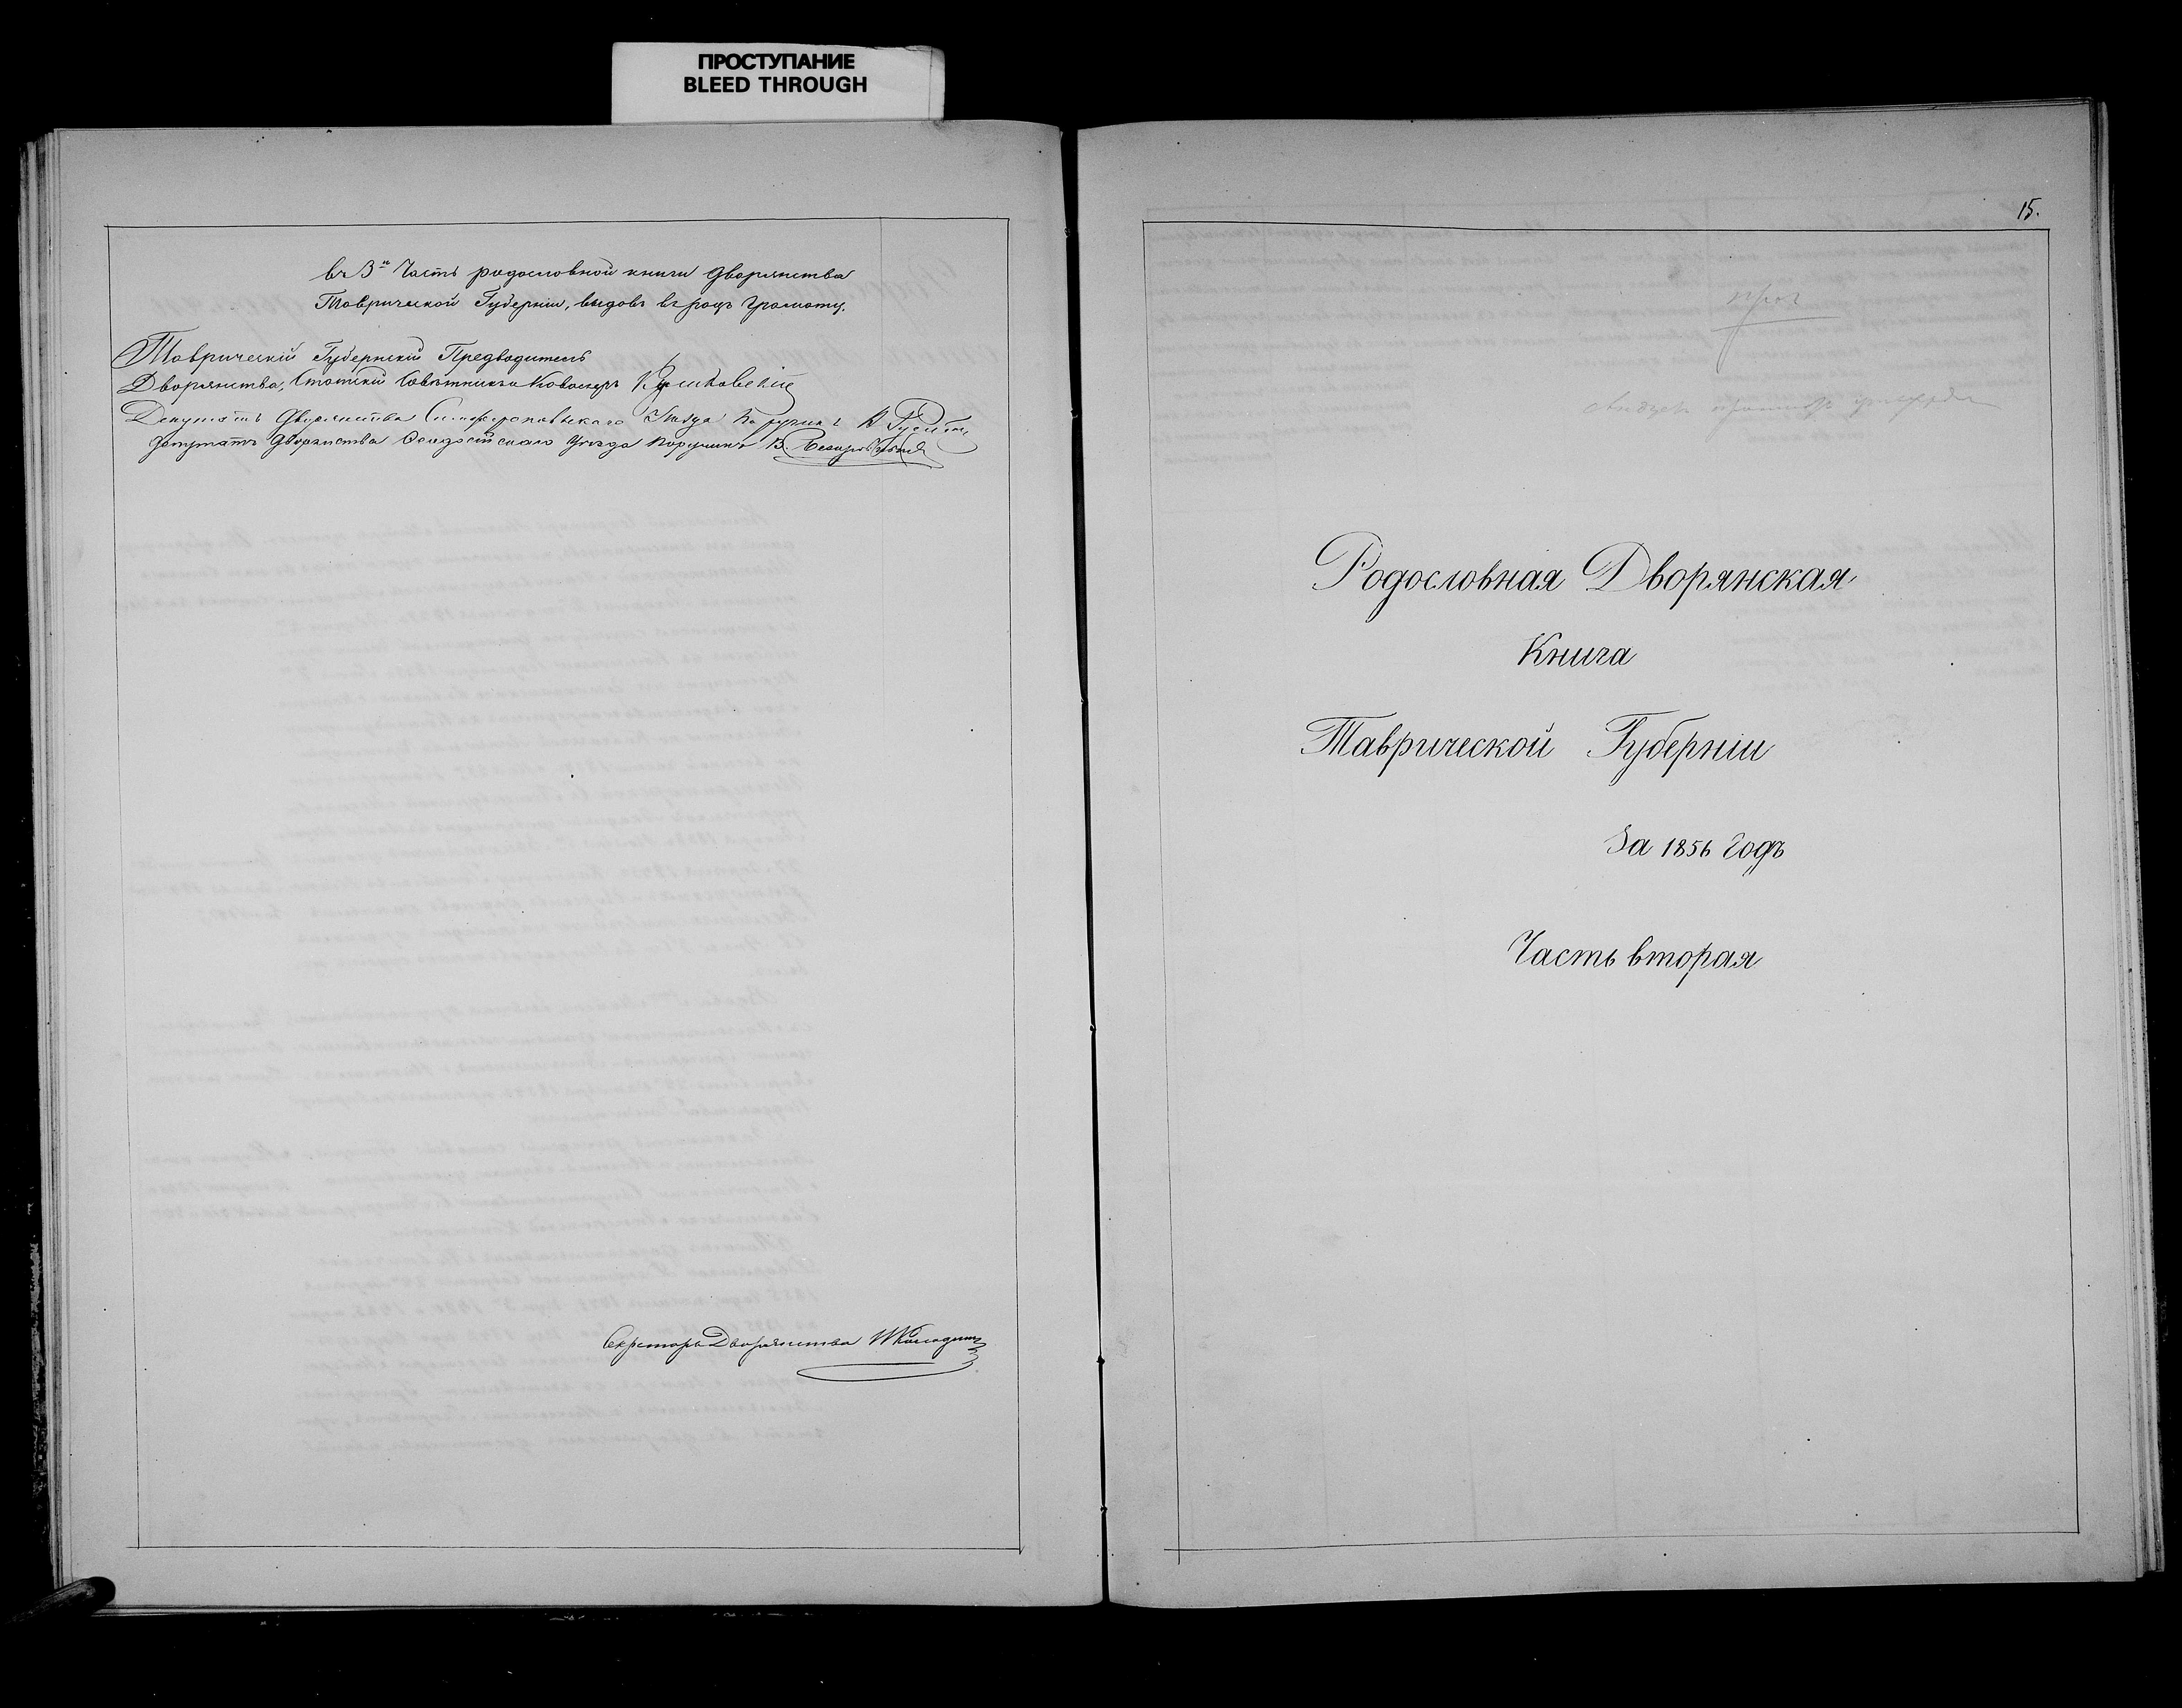 ПРОСТУПАНИЕ
BLEED THROUGH
въ 3ю Часть родословной книги дворянства
Таврической Губерніи, выдавъ въ родъ грамоту.
Таврическій Губернскій Предводитель
Дворянства, Статскій Совѣтникъ и Кавалеръ
Депутатъ Дворянства Симферопольскаго Уѣзда Поручикъ
Депутатъ Дворянства Ѳеодосійскаго Уѣзда Поручикъ В.
Секретарь Дворянства
15.
Родословная Дворянская
Книга
Таврической Губерніи
За 1856 Годъ
Часть вторая